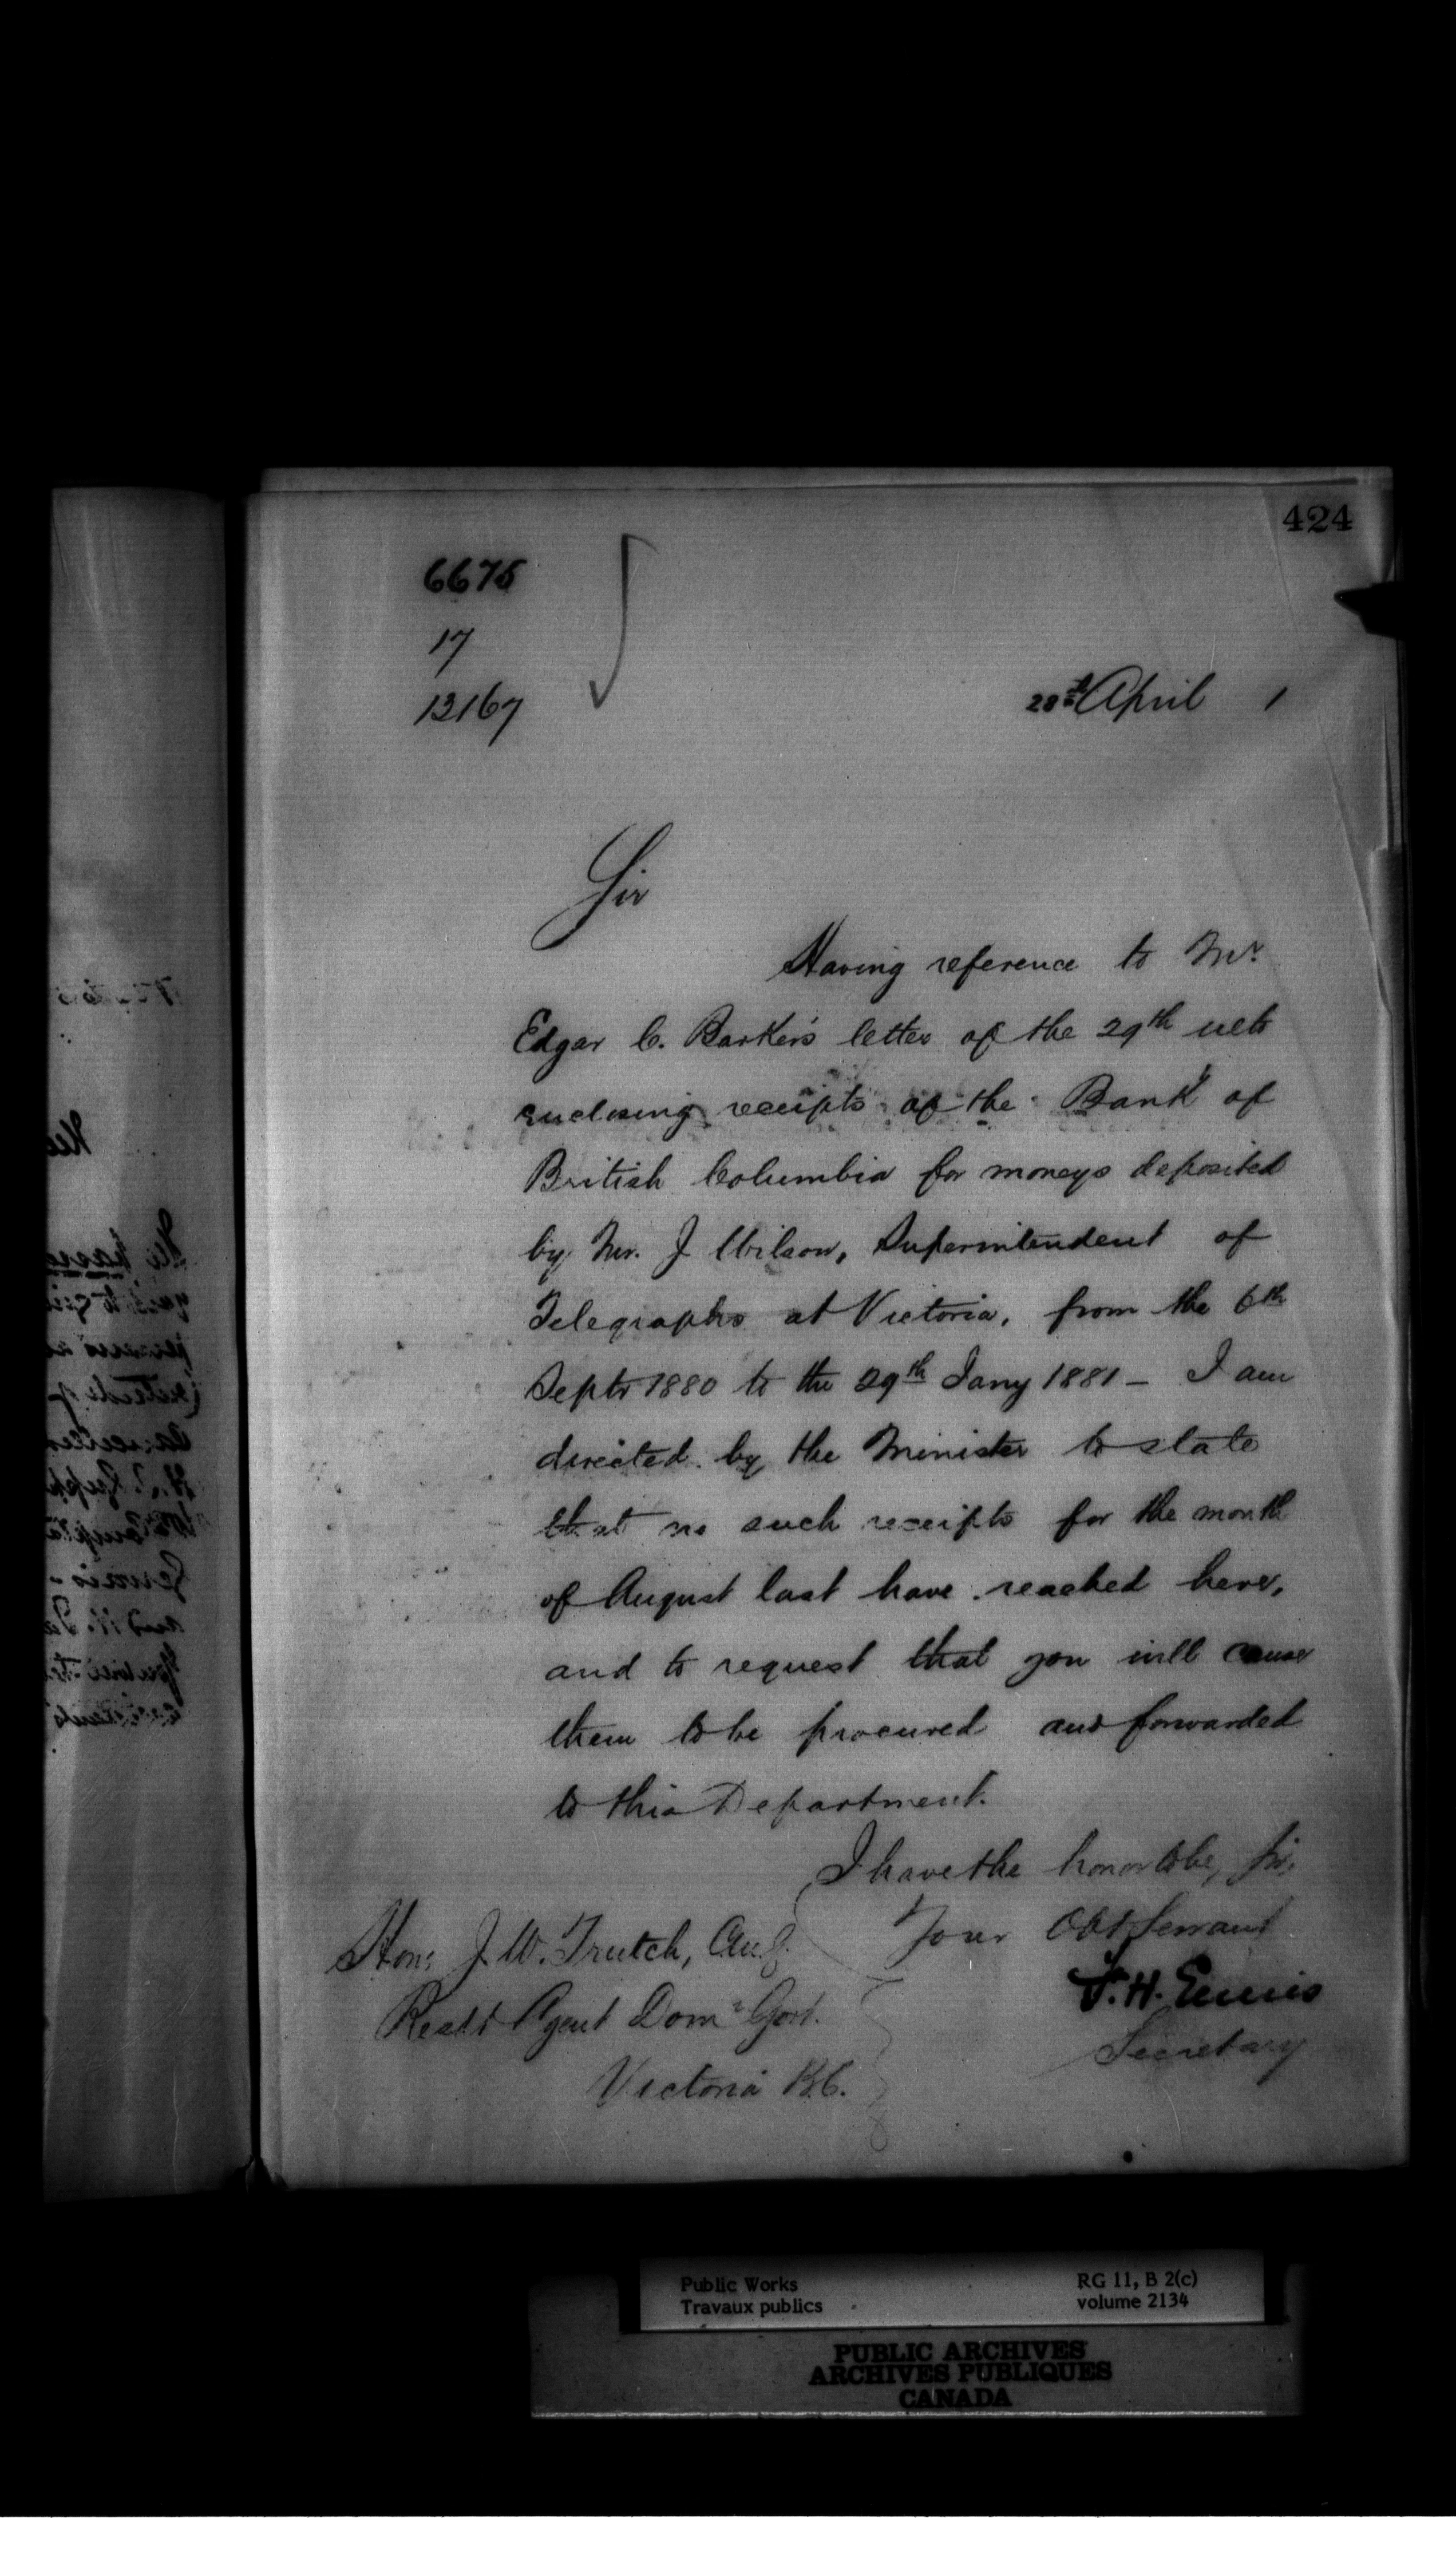 424
6675
17
13167
28th April 1
Sir
Having reference to Mr.
Edgar C. Barker's letter of the 29th ulto
enclosing receipts of the Bank of
British Columbia for moneys deposited
by Mr. J Wilson, Superintendent of
Telegraphs at Victoria, from the 6th
Septr 1880 to the 29th Jany 1881 - I am
directed by the Minister to state
that no such receipts for the month
of August last have reached here,
and to request that you will cause
them to be procured and forwarded
to this Department.
I have the honor to be, Sir,
Your Obt Servant
F. H. Ennis
Secretary
Hon: J. W. Trutch,
Resdt Agent Domn Govt.
Victoria B.C.
Public Works
Travaux publics
RG 11, B 2(c)
volume 2134
PUBLIC ARCHIVES
ARCHIVES PUBLIQUES
CANADA